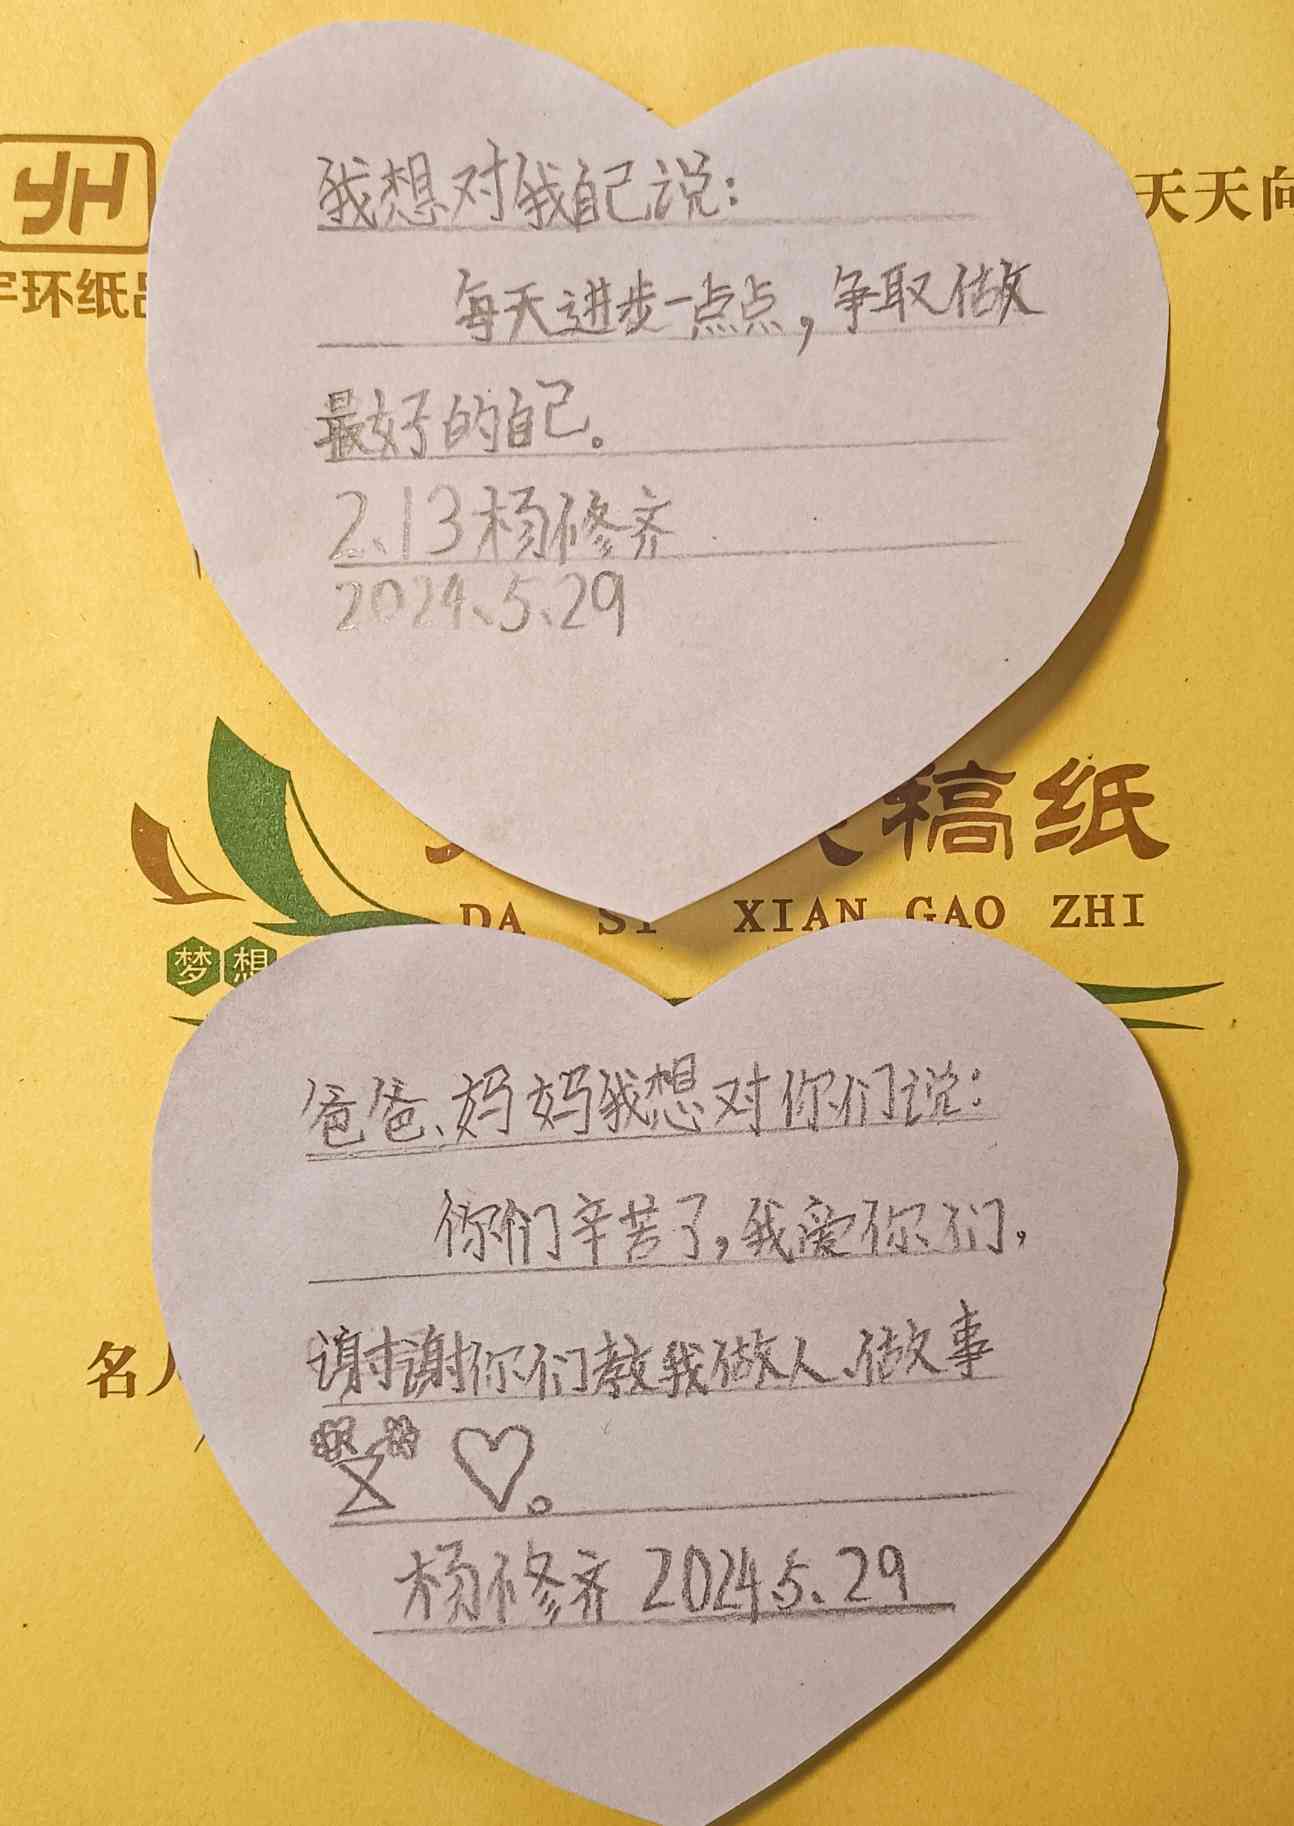 YH
天天向
环纸品
我想对我自己说：
每天进步一点点，争取做
最好的自己。
2、13杨修齐
2024、5、29
稿纸
DA SI XIAN GAO ZHI
梦想
爸爸、妈妈我想对你们说：
你们辛苦了，我爱你们，
谢谢你们教我做人、做事
。
杨修齐 2024、5、29
名人